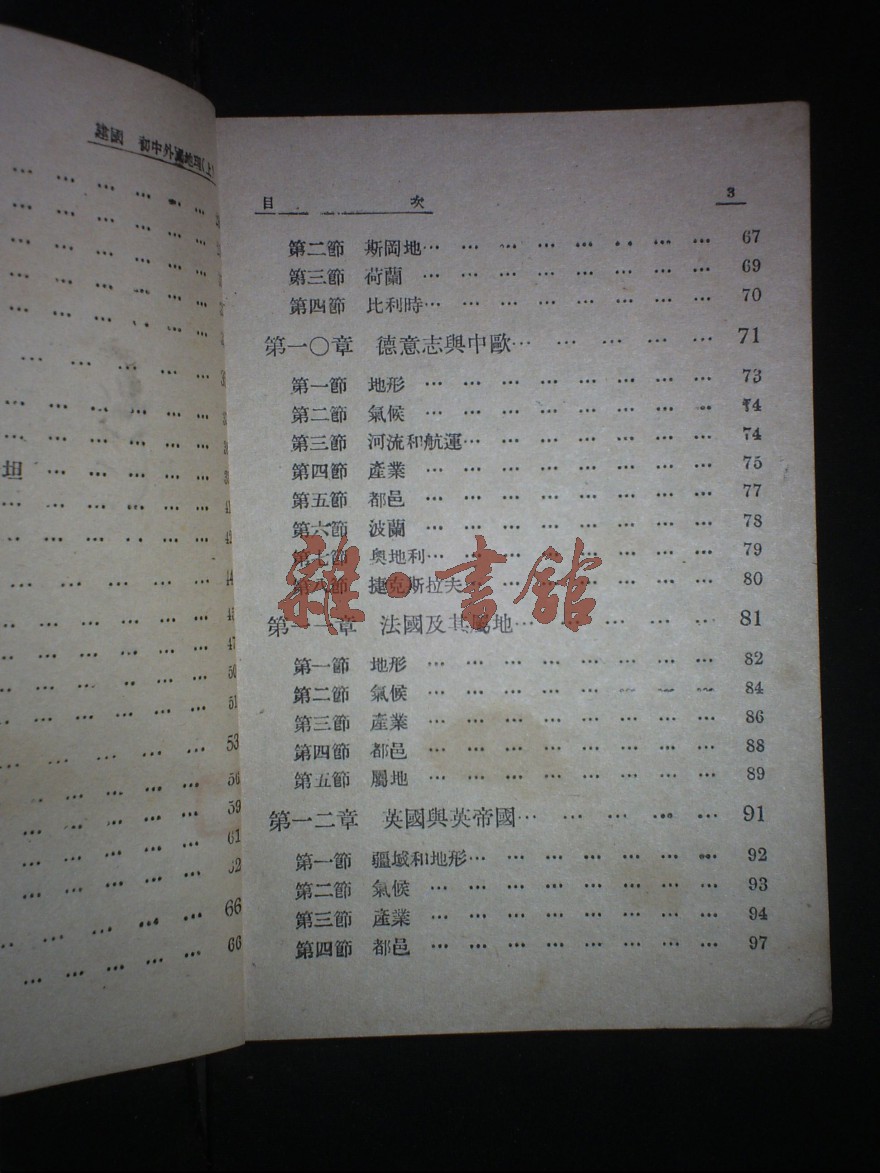 建國 初中外國地理(上)
坦 … … … … …
47
50
51
53
56
59
61
66
66
目 次 3
第二節 斯岡地… … … … … … … … 67
第三節 荷蘭 … … … … … … … … 69
第四節 比利時… … … … … … … … 70
第一〇章 德意志與中歐… … … … … … 71
第一節 地形 … … … … … … … … 73
第二節 氣候 … … … … … … … … 74
第三節 河流和航運… … … … … … … 74
第四節 產業 … … … … … … … … 75
第五節 都邑 … … … … … … … … 77
第六節 波蘭 … … … … … … … … 78
第七節 奧地利… … … … … … … … 79
第八節 捷克斯拉夫… … … … … … … 80
雜·書館
第一一章 法國及其屬地… … … … … … 81
第一節 地形 … … … … … … … … 82
第二節 氣候 … … … … … … … … 84
第三節 產業 … … … … … … … … 86
第四節 都邑 … … … … … … … … 88
第五節 屬地 … … … … … … … … 89
第一二章 英國與英帝國… … … … … … 91
第一節 疆域和地形… … … … … … … 92
第二節 氣候 … … … … … … … … 93
第三節 產業 … … … … … … … … 94
第四節 都邑 … … … … … … … … 97